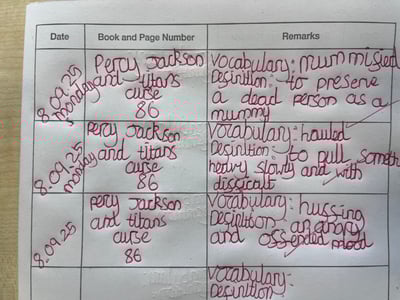 Date Book and Page Number Remarks
8.09.25
monday
Percy Jackson
and titans
curse
86
Vocabulary: mummisied
Desinition: to preserve
a dead person as a
mummy
8.09.25
monday
Percy Jackson
and titans
curse
86
Vocabulary: hauled
Desinition: to pull something
heavy slowly and with
dissicalt
8.09.25
Percy Jackson
and titans
curse
86
Vocabulary: hussing
Desinition: an angry
and ossended mood
Vocabulary:
Desinition